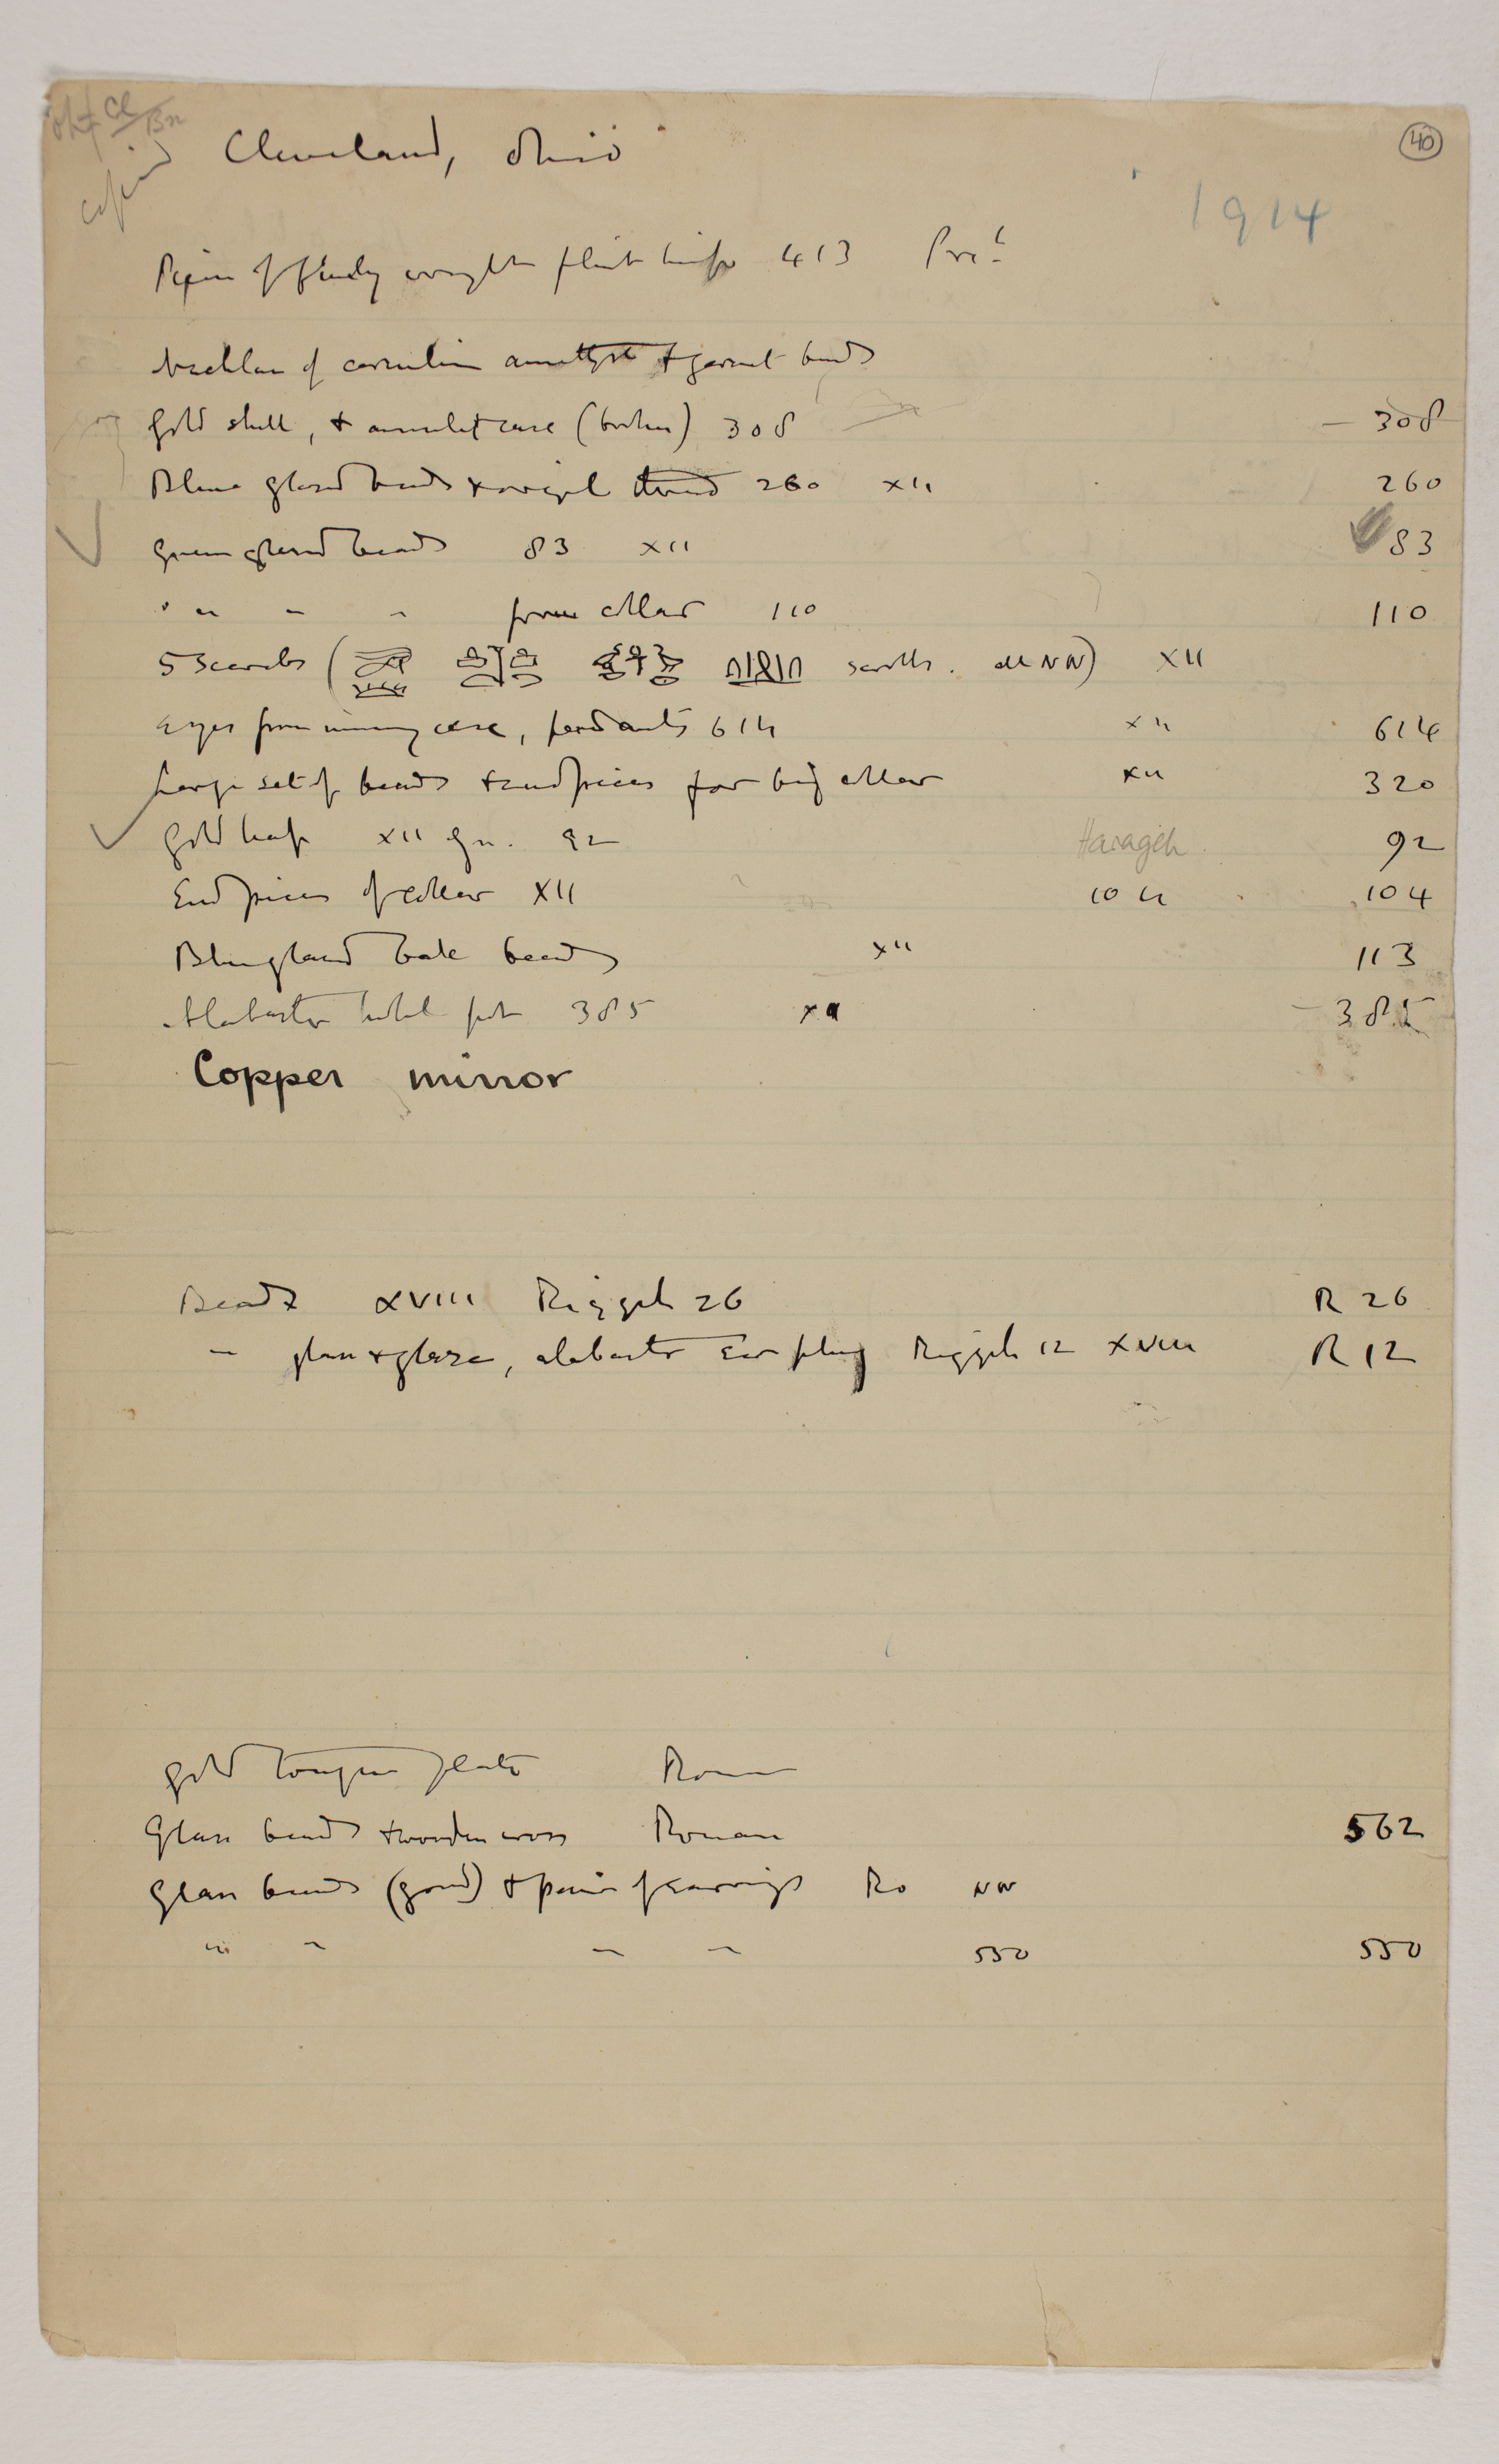 Cl
Bn
copied
Cleveland, Ohio
40
1914
Piece of finely wrought flint knife 413 Pre?
Necklace of carnelian amethyst + garnet beads
Gold shell, + amulet case (broken) 308 308
Blue glazed beads + original thread 260 XII 260
Green glazed beads 83 XII 83
" " " " from collar 110 110
5 Scarabs ( scrolls. all NN) XII
Eyes from mummy case, pendants 614 XII 614
Large set of beads + end pieces for big collar XII 320
Gold leaf XII gr. 92 Harageh 92
End pieces of collar XII 104 104
Blue glazed ball beads XII 113
Alabaster kohl pot 385 XII 385
Copper mirror
Beads XVIII Riqqeh 26 R 26
" glass + glaze, alabaster ear plug Riqqeh 12 XVIII R 12
Gold tongue plate Roman
Glass beads + wooden cross Roman 562
Glass beads (good) + pair of earrings Ro NN
" " " " 550 550